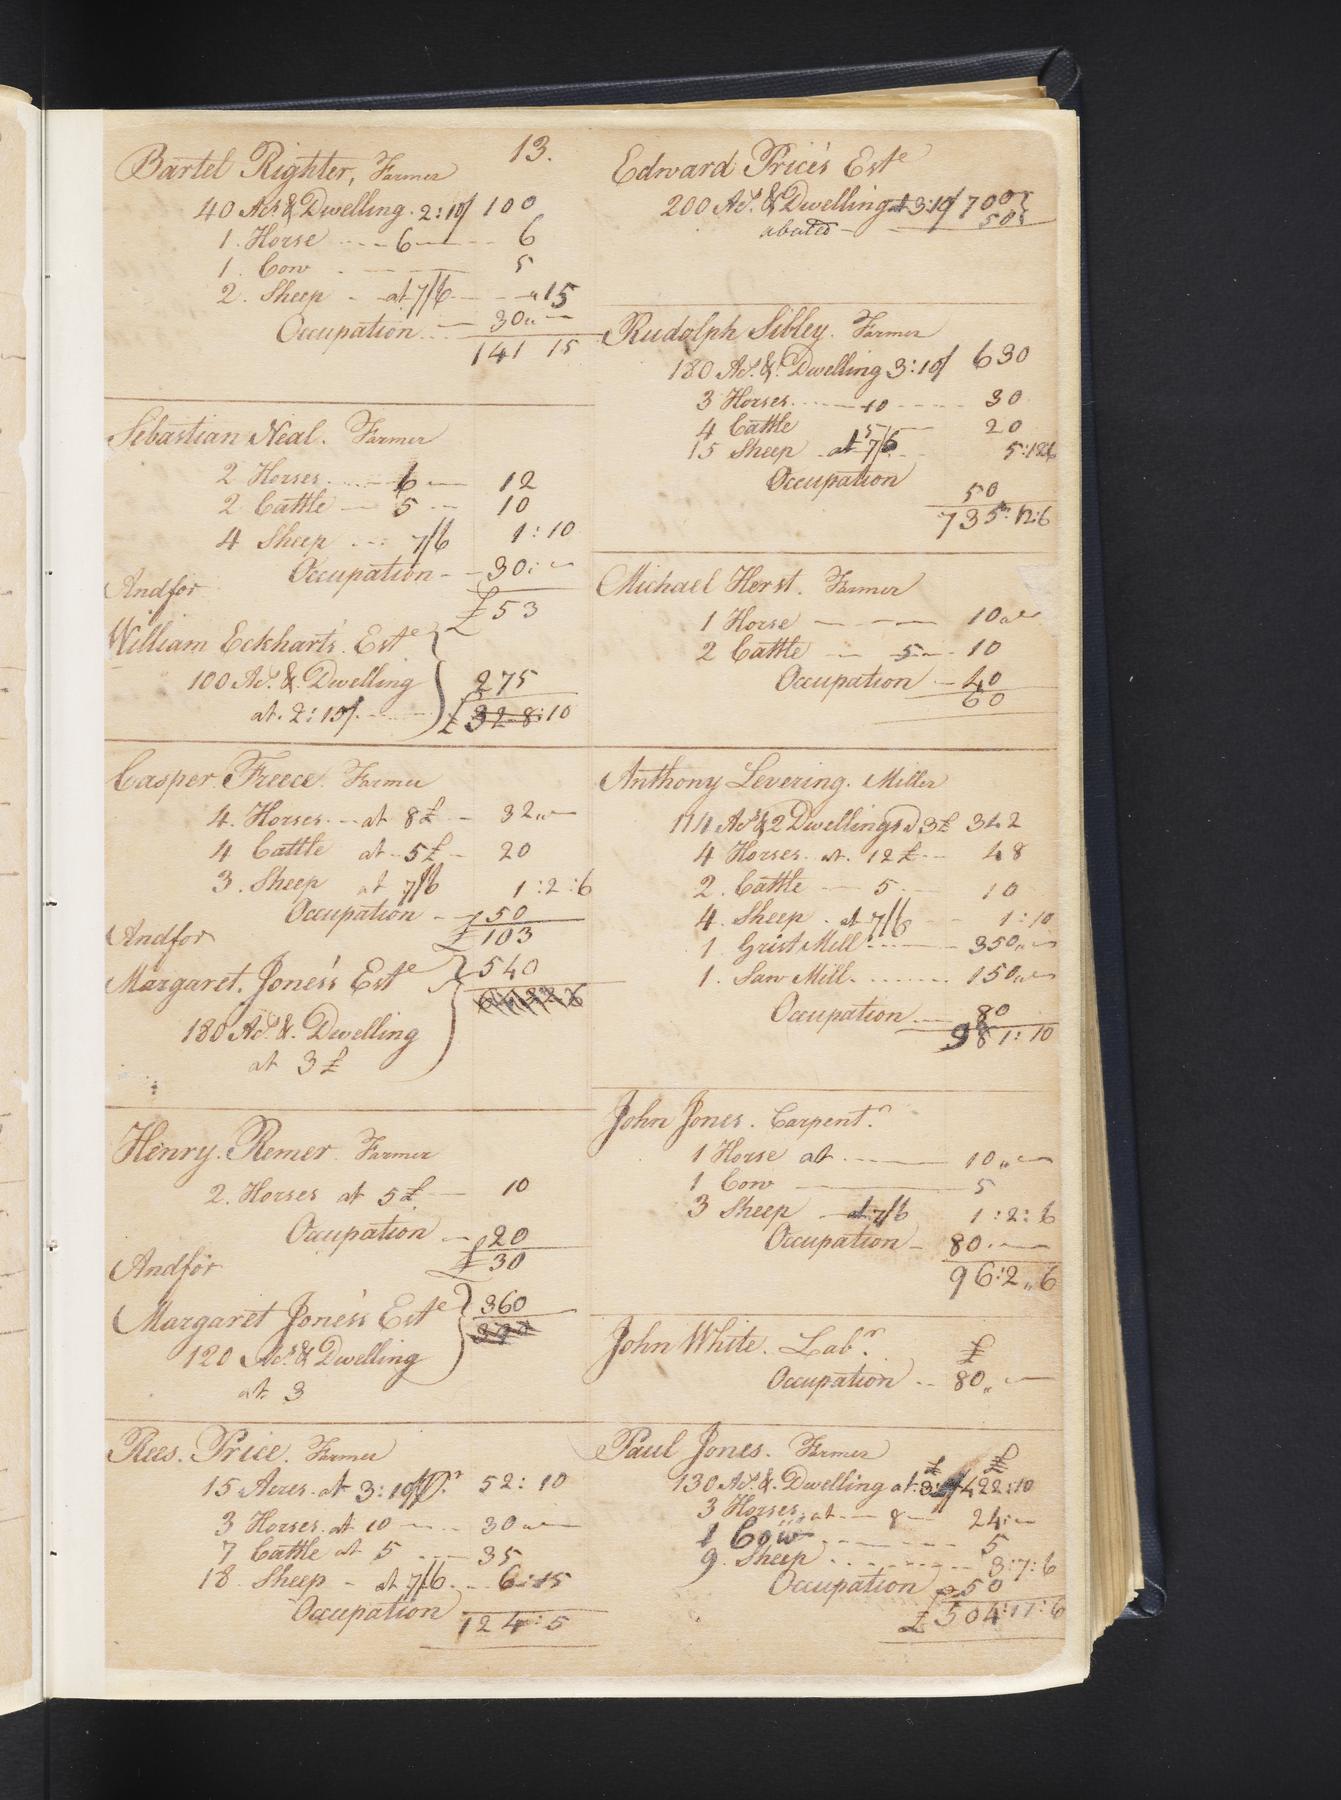 13.
Bartel Righter, Farmer
40 Acs & Dwelling. 2:10/ 100
1. Horse 6 6
1. Cow 5
2. Sheep at 7/6 15
Occupation 30
141 15
Sebastian Neal. Farmer
2 Horses 6 12
2 Cattle 5 10
4 Sheep 7/6 1:10
Occupation 30
Andfor £53
William Eckhart's Este
100 As. & Dwelling 275
at 2:15/ £328:10
Casper Freece. Farmer
4. Horses at 8£ 32
4 Cattle at 5£ 20
3. Sheep at 7/6 1:2:6
Occupation 50
Andfor £103
Margaret. Jones's Este 540
180 As. & Dwelling
at 3£
Henry. Remer. Farmer
2. Horses at 5£ 10
Occupation 20
Andfor £30
Margaret Jones's Este 360
120 Acs & Dwelling
at 3
Rees. Price. Farmer
15 Acres. at 3:10/ 52:10
3 Horses. at 10 30
7 Cattle at 5 35
18. Sheep at 7/6 6:15
Occupation
124:5
Edward Price's Este
200 As. & Dwelling at 3:10/ 700
abated 50
Rudolph Sibley. Farmer
180 As. & Dwelling 3:10/ 630
3 Horses 10 30
4 Cattle 5 20
15 Sheep at 7/6 5:12:6
Occupation 50
735:12:6
Michael Herst. Farmer
1 Horse 10
2 Cattle 5 10
Occupation 40
60
Anthony Levering. Miller
114 As & 2 Dwellings a 3£ 342
4 Horses at. 12£ 48
2. Cattle 5 10
4. Sheep at 7/6 1:10
1. Grist Mill 350
1. Saw Mill 150
Occupation 80
981:10
John Jones. Carpentr.
1 Horse at 10
1 Cow 5
3 Sheep at 7/6 1:2:6
Occupation 80
96:2,,6
John White. Labr. £
Occupation 80
Paul Jones. Farmer £ £
130 As. & Dwelling at 422:10
3 Horses at 8 24
1 Cow 5
9. Sheep 3:7:6
Occupation 50
£504:17:6